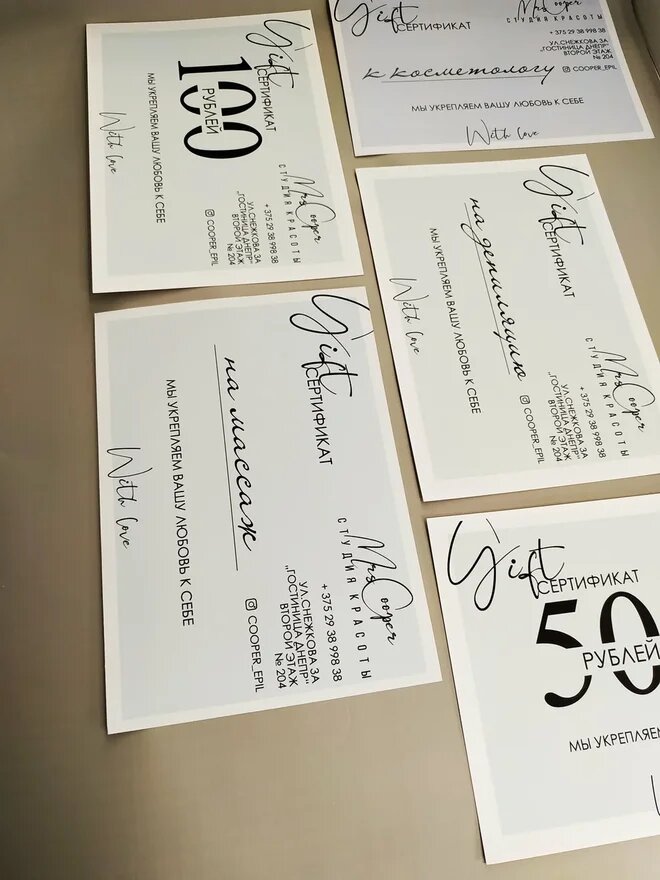 Gift
СЕРТИФИКАТ
100
РУБЛЕЙ
МЫ УКРЕПЛЯЕМ ВАШУ ЛЮБОВЬ К СЕБЕ
With love
Mrs Cooper
СТУДИЯ КРАСОТЫ
+ 375 29 38 998 38
УЛ.СНЕЖКОВА 3А
"ГОСТИНИЦА ДНЕПР"
ВТОРОЙ ЭТАЖ
№ 204
COOPER_EPIL
Gift
СЕРТИФИКАТ
к косметологу
МЫ УКРЕПЛЯЕМ ВАШУ ЛЮБОВЬ К СЕБЕ
With love
Mrs Cooper
СТУДИЯ КРАСОТЫ
+ 375 29 38 998 38
УЛ.СНЕЖКОВА 3А
"ГОСТИНИЦА ДНЕПР"
ВТОРОЙ ЭТАЖ
№ 204
COOPER_EPIL
Gift
СЕРТИФИКАТ
на депиляцию
МЫ УКРЕПЛЯЕМ ВАШУ ЛЮБОВЬ К СЕБЕ
With love
Mrs Cooper
СТУДИЯ КРАСОТЫ
+ 375 29 38 998 38
УЛ.СНЕЖКОВА 3А
"ГОСТИНИЦА ДНЕПР"
ВТОРОЙ ЭТАЖ
№ 204
COOPER_EPIL
Gift
СЕРТИФИКАТ
на массаж
МЫ УКРЕПЛЯЕМ ВАШУ ЛЮБОВЬ К СЕБЕ
With love
Mrs Cooper
СТУДИЯ КРАСОТЫ
+ 375 29 38 998 38
УЛ.СНЕЖКОВА 3А
"ГОСТИНИЦА ДНЕПР"
ВТОРОЙ ЭТАЖ
№ 204
COOPER_EPIL
Gift
СЕРТИФИКАТ
50
РУБЛЕЙ
МЫ УКРЕПЛЯЕМ